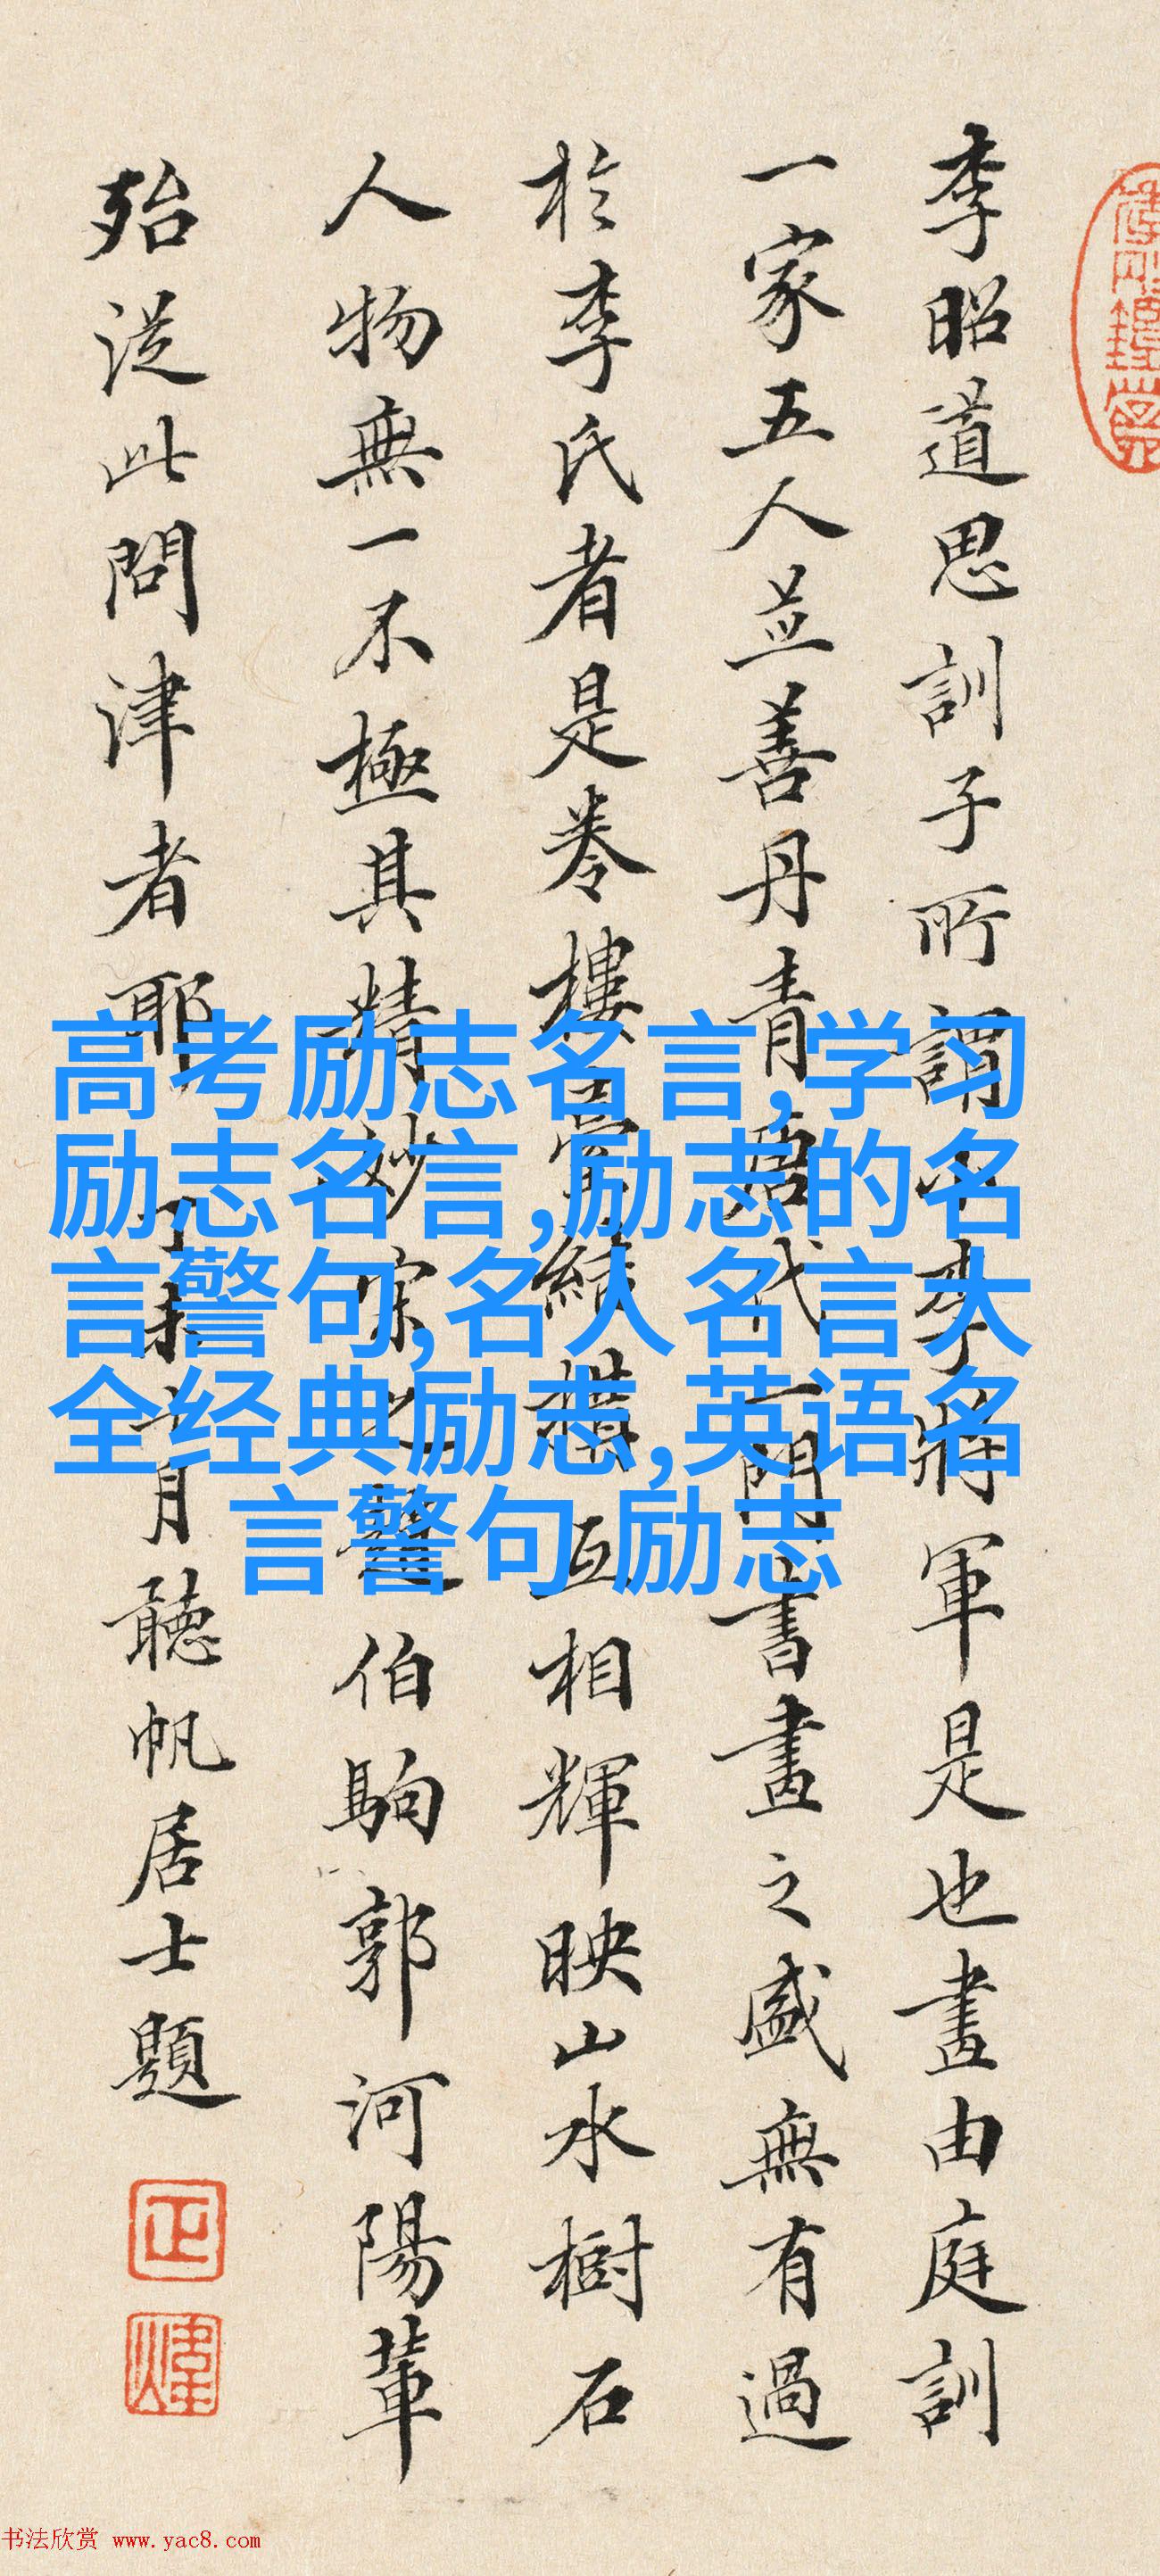 李昭道思訓子所謂小李將軍是也畫由庭訓
一家五人並善丹青唐代一門書畫之盛無有過
於李氏者是卷樓臺結構互相輝映山水樹石
人物無一不極其精妙宗之伯駒郭河陽輩
殆從此問津者耶月聽帆居士題
高考励志名言,学习
励志名言,励志的名
言警句,名人名言大
全经典励志,英语名
言警句 励志
书法欣赏 www.yac8.com